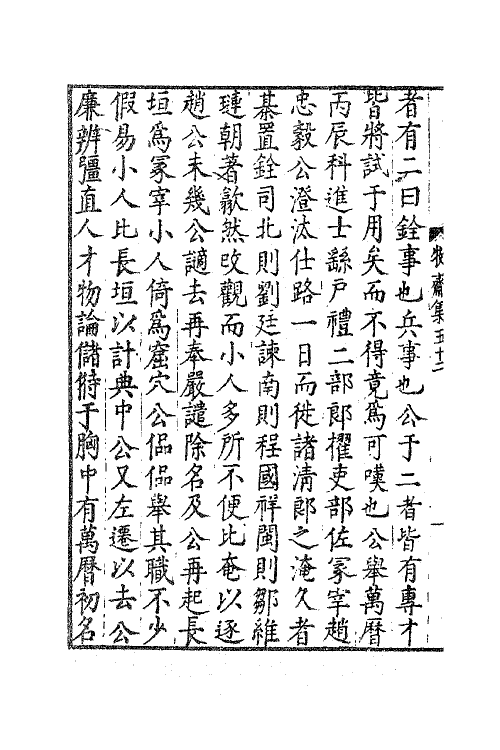 牧齋集五十二
者有二曰銓事也兵事也公于二者皆有專才
皆將試于用矣而不得竟爲可嘆也公舉萬曆
丙辰科進士繇戶禮二部郎擢吏部佐冢宰趙
忠毅公澄汰仕路一日而徙諸清郎之淹久者
綦置銓司北則劉廷諫南則程國祥閩則鄒維
璉朝著歙然改觀而小人多所不便比奄以逐
趙公未幾公謫去再奉嚴譴除名及公再起長
垣爲冢宰小人倚爲窟穴公偘偘舉其職不少
假易小人比長垣以計典中公又左遷以去公
廉辨彊直人才物論儲偫于胸中有萬曆初名